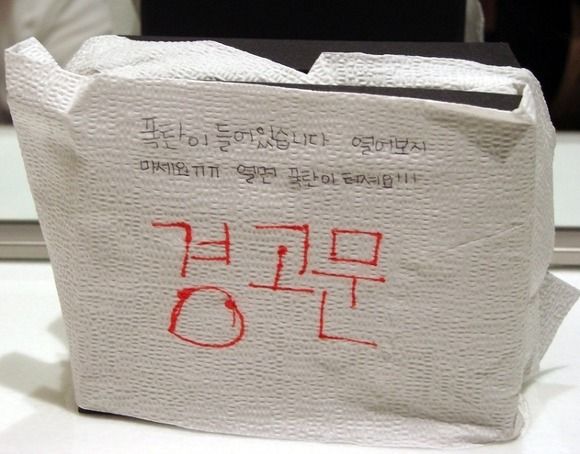 폭탄이 들어있습니다 열어보지
마세요ㅠㅠ 열면 폭탄이 터져요!!!
경고문